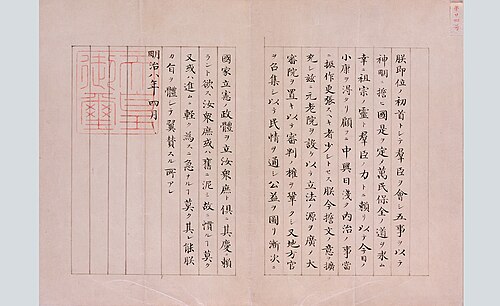 朕即位ノ初首トシテ群臣ヲ會シ五事ヲ以テ
神明ニ誓ヒ國是ヲ定メ萬民保全ノ道ヲ求ム
幸ニ祖宗ノ靈ト群臣ノ力トニ頼リ以テ今日ノ
小康ヲ得タリ顧ニ中興日浅ク内治ノ事當
ニ振作更張スヘキ者少シトセス朕今誓文ノ意ヲ擴
充シ茲ニ元老院ヲ設ケ以テ立法ノ源ヲ廣メ大
審院ヲ置キ以テ審判ノ權ヲ鞏クシ又地方官
ヲ召集シ以テ民情ヲ通シ公益ヲ圖リ漸次ニ
國家立憲ノ政體ヲ立テ汝衆庶ト倶ニ其慶ニ頼
ント欲ス汝衆庶或ハ舊ニ泥ミ故ニ慣ルヽコト莫ク
又或ハ進ムニ輕ク為スニ急ナルコト莫ク其レ能朕
カ旨ヲ體シテ翼賛スル所アレ
明治八年四月
天皇
御璽